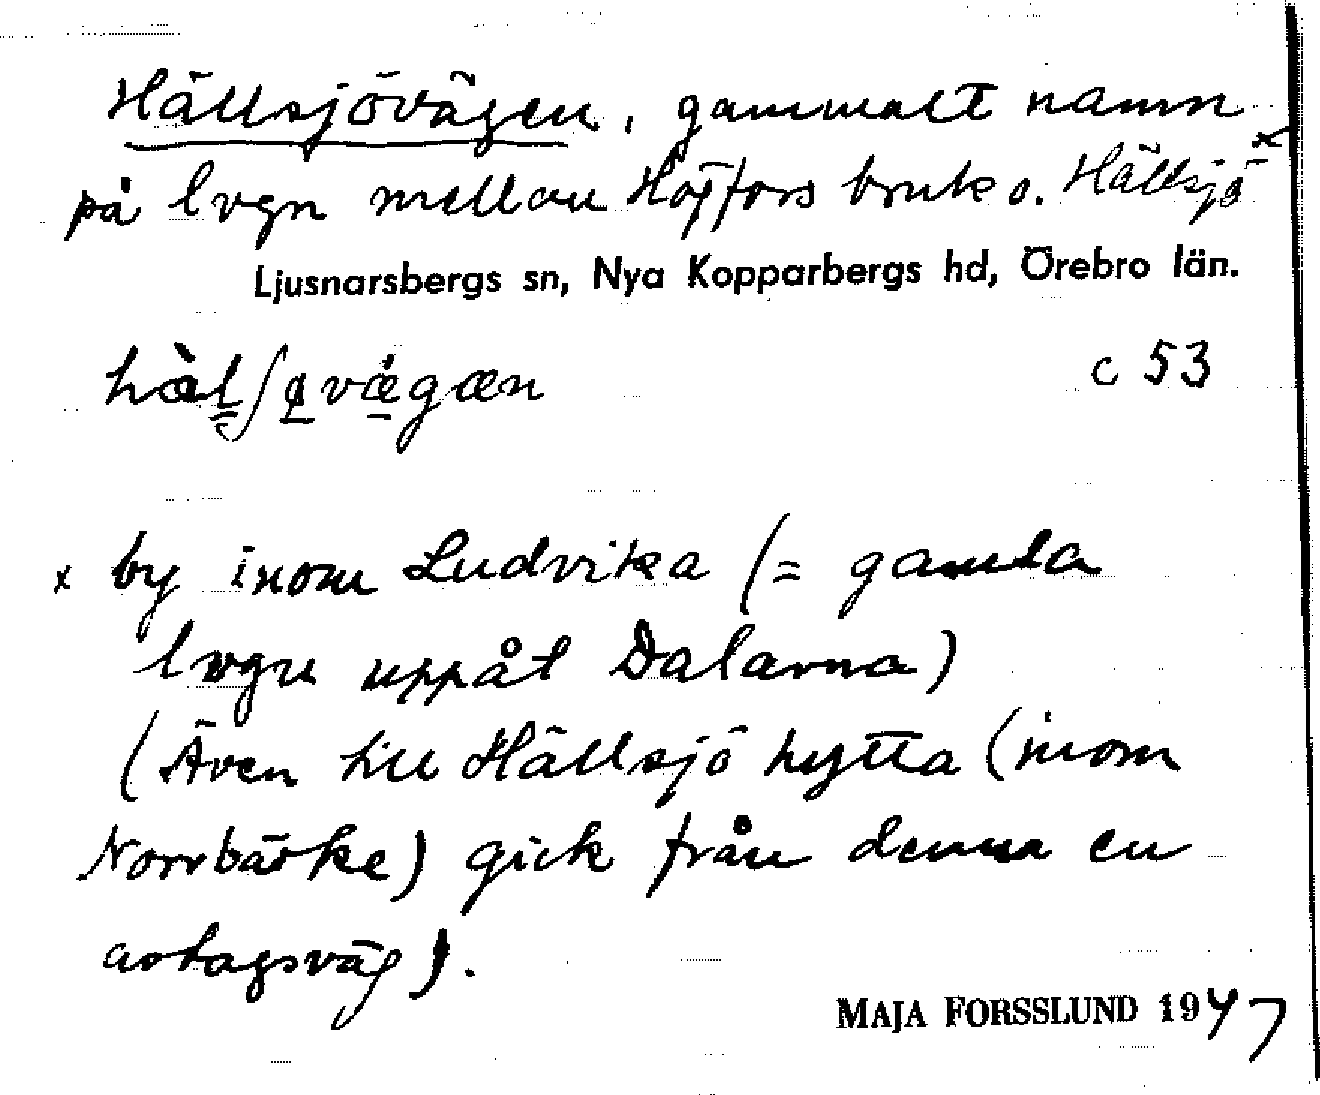 Hällsjövägen, gammalt namn
på lvgn mellan Högfors bruk o. Hällsjö x
Ljusnarsbergs sn, Nya Kopparbergs hd, Örebro län.
c 53
x by inom Ludvika (= gamla
lvgn uppåt Dalarna)
(Även till Hällsjö hytta (inom
Norrbärke) gick från denna en
avtagsväg).
MAJA FORSSLUND 1947